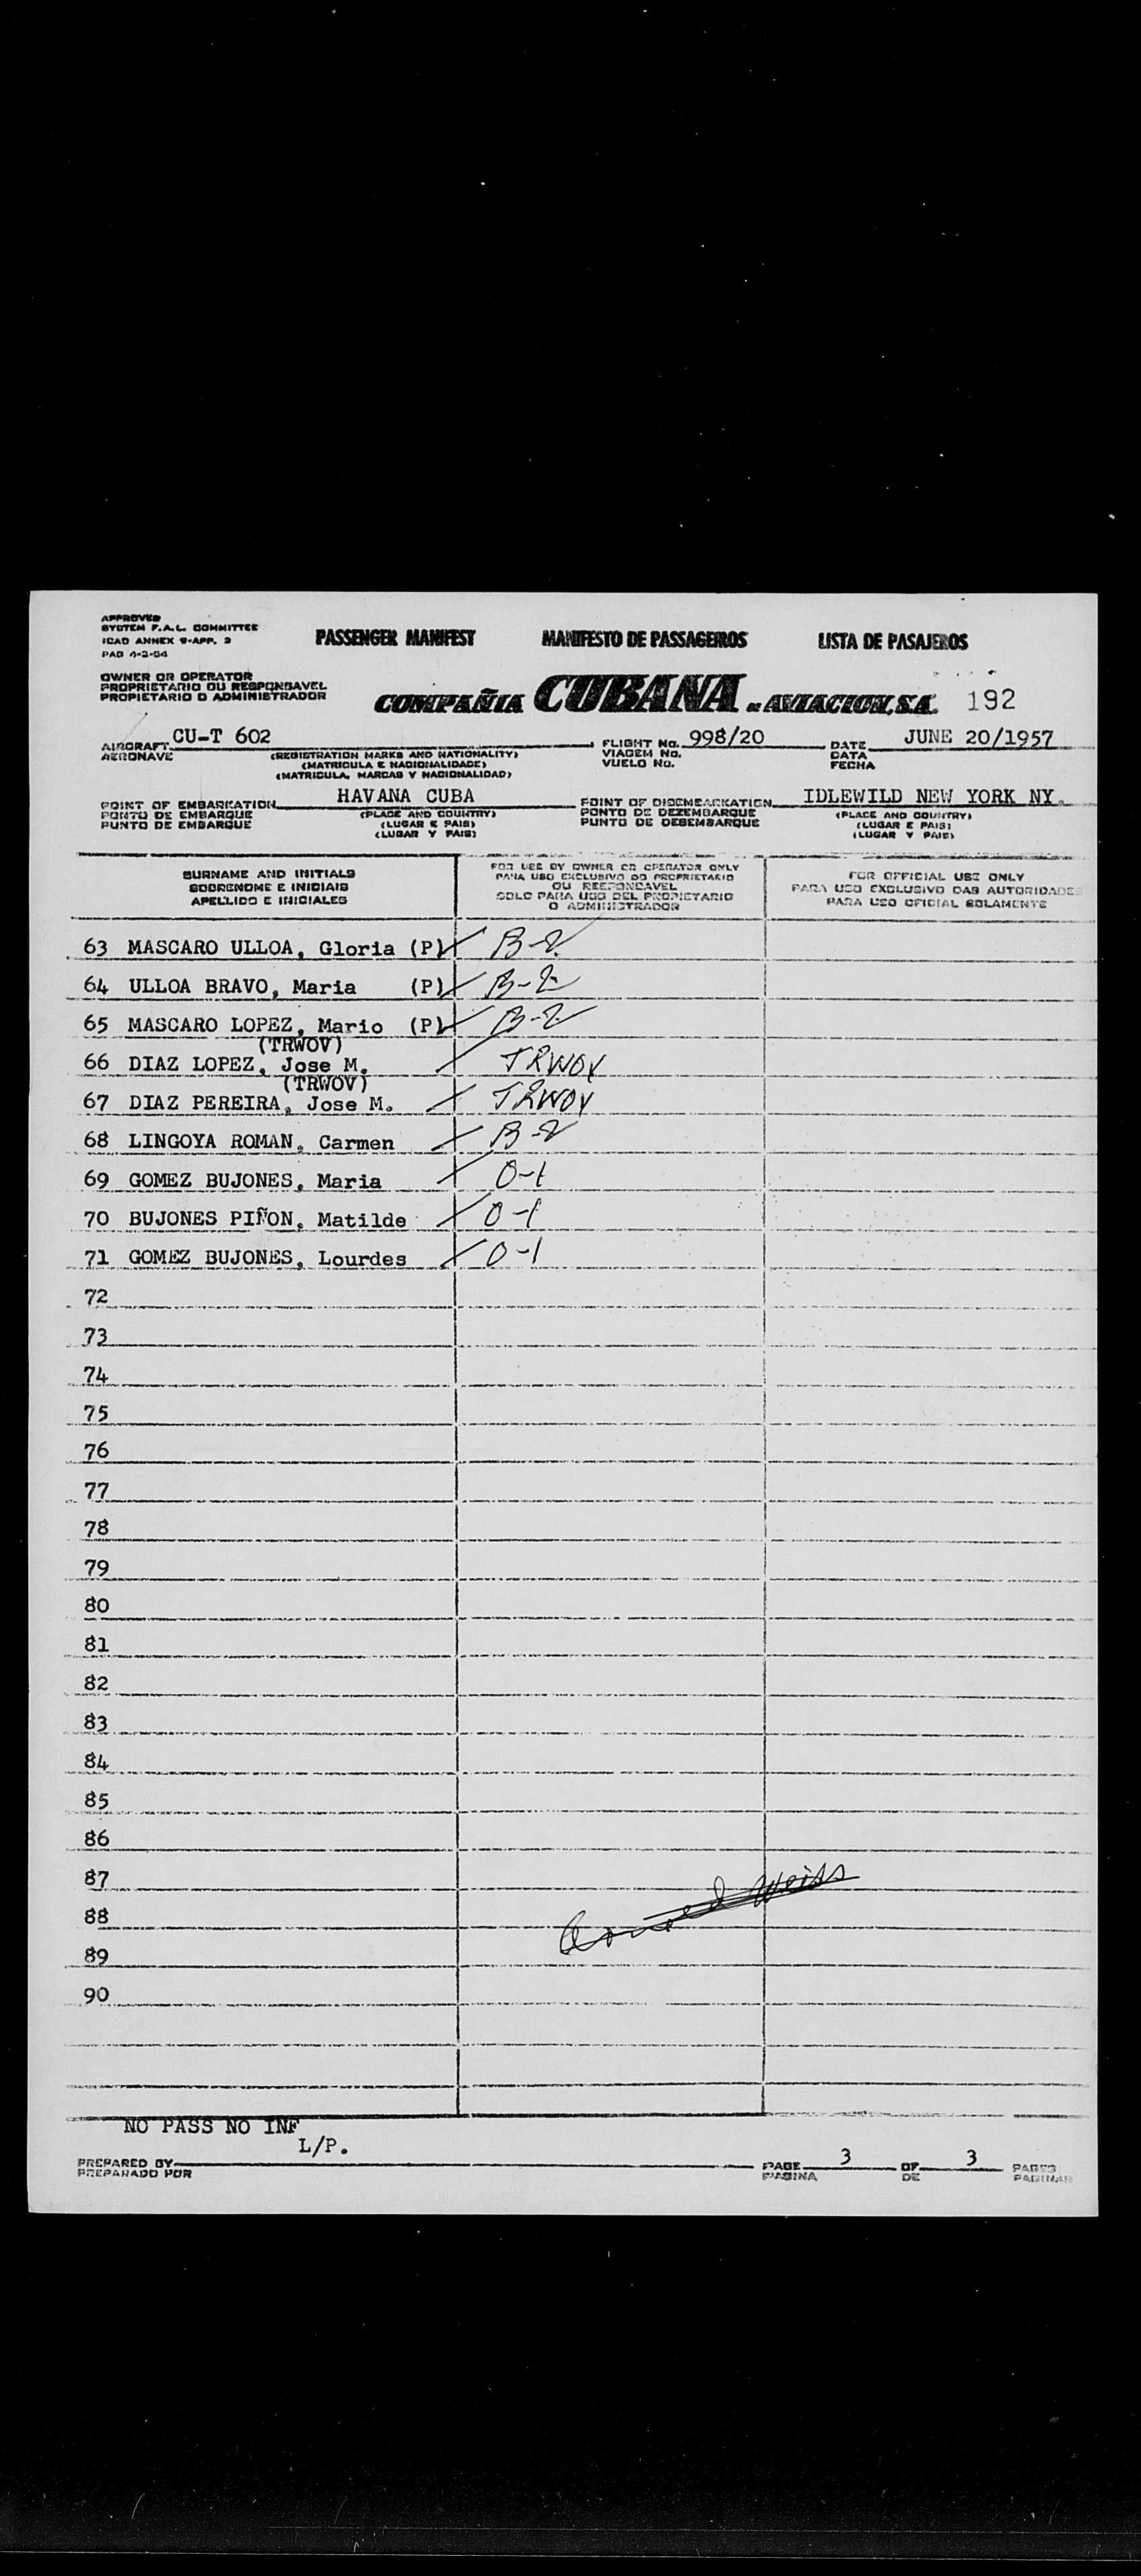 APPROVED
SYSTEM F.A.L. COMMITTEE
ICAO ANNEX 9-APP. 3
PAO 4-2-54
PASSENGER MANIFEST MANIFESTO DE PASSAGEIROS LISTA DE PASAJEROS
OWNER OR OPERATOR
PROPRIETARIO OU RESPONSAVEL
PROPIETARIO O ADMINISTRADOR
COMPAÑIA CUBANA DE AVIACION, S.A. 192
AIRCRAFT CU-T 602 FLIGHT No. 998/20 DATE JUNE 20/1957
AERONAVE (REGISTRATION MARKS AND NATIONALITY) VIAGEM No. DATA
(MATRICULA E NACIONALIDADE) VUELO No. FECHA
(MATRICULA, MARCAS Y NACIONALIDAD)
POINT OF EMBARKATION HAVANA CUBA POINT OF DISEMBARKATION IDLEWILD NEW YORK NY.
PONTO DE EMBARQUE (PLACE AND COUNTRY) PONTO DE DEZEMBARQUE (PLACE AND COUNTRY)
PUNTO DE EMBARQUE (LUGAR E PAIS) PUNTO DE DESEMBARQUE (LUGAR E PAIS)
(LUGAR Y PAIS) (LUGAR Y PAIS)
SURNAME AND INITIALS
SOBRENOME E INICIAIS
APELLIDO E INICIALES
FOR USE BY OWNER OR OPERATOR ONLY
PARA USO EXCLUSIVO DO PROPRIETARIO
OU RESPONSAVEL
SOLO PARA USO DEL PROPIETARIO
O ADMINISTRADOR
FOR OFFICIAL USE ONLY
PARA USO EXCLUSIVO DAS AUTORIDADES
PARA USO OFICIAL SOLAMENTE
63 MASCARO ULLOA, Gloria (P) B-2
64 ULLOA BRAVO, Maria (P) B-2
65 MASCARO LOPEZ, Mario (P) B-2
(TRWOV)
66 DIAZ LOPEZ, Jose M. TRWOV
(TRWOV)
67 DIAZ PEREIRA, Jose M. TRWOV
68 LINGOYA ROMAN, Carmen B-2
69 GOMEZ BUJONES, Maria O-1
70 BUJONES PIÑON, Matilde O-1
71 GOMEZ BUJONES, Lourdes O-1
72
73
74
75
76
77
78
79
80
81
82
83
84
85
86
87
88
89
90
Weiss
NO PASS NO INF
L/P.
PREPARED BY PAGE 3 OF 3 PAGES
PREPARADO POR PAGINA DE PAGINAS